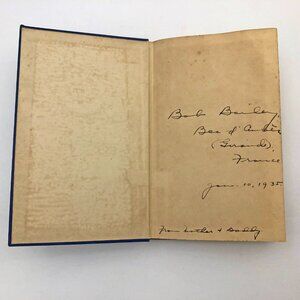 Bob Bailey,
Bec d'Ambès
(Gironde),
France
Jan. 10, 1935
From Mother & Daddy